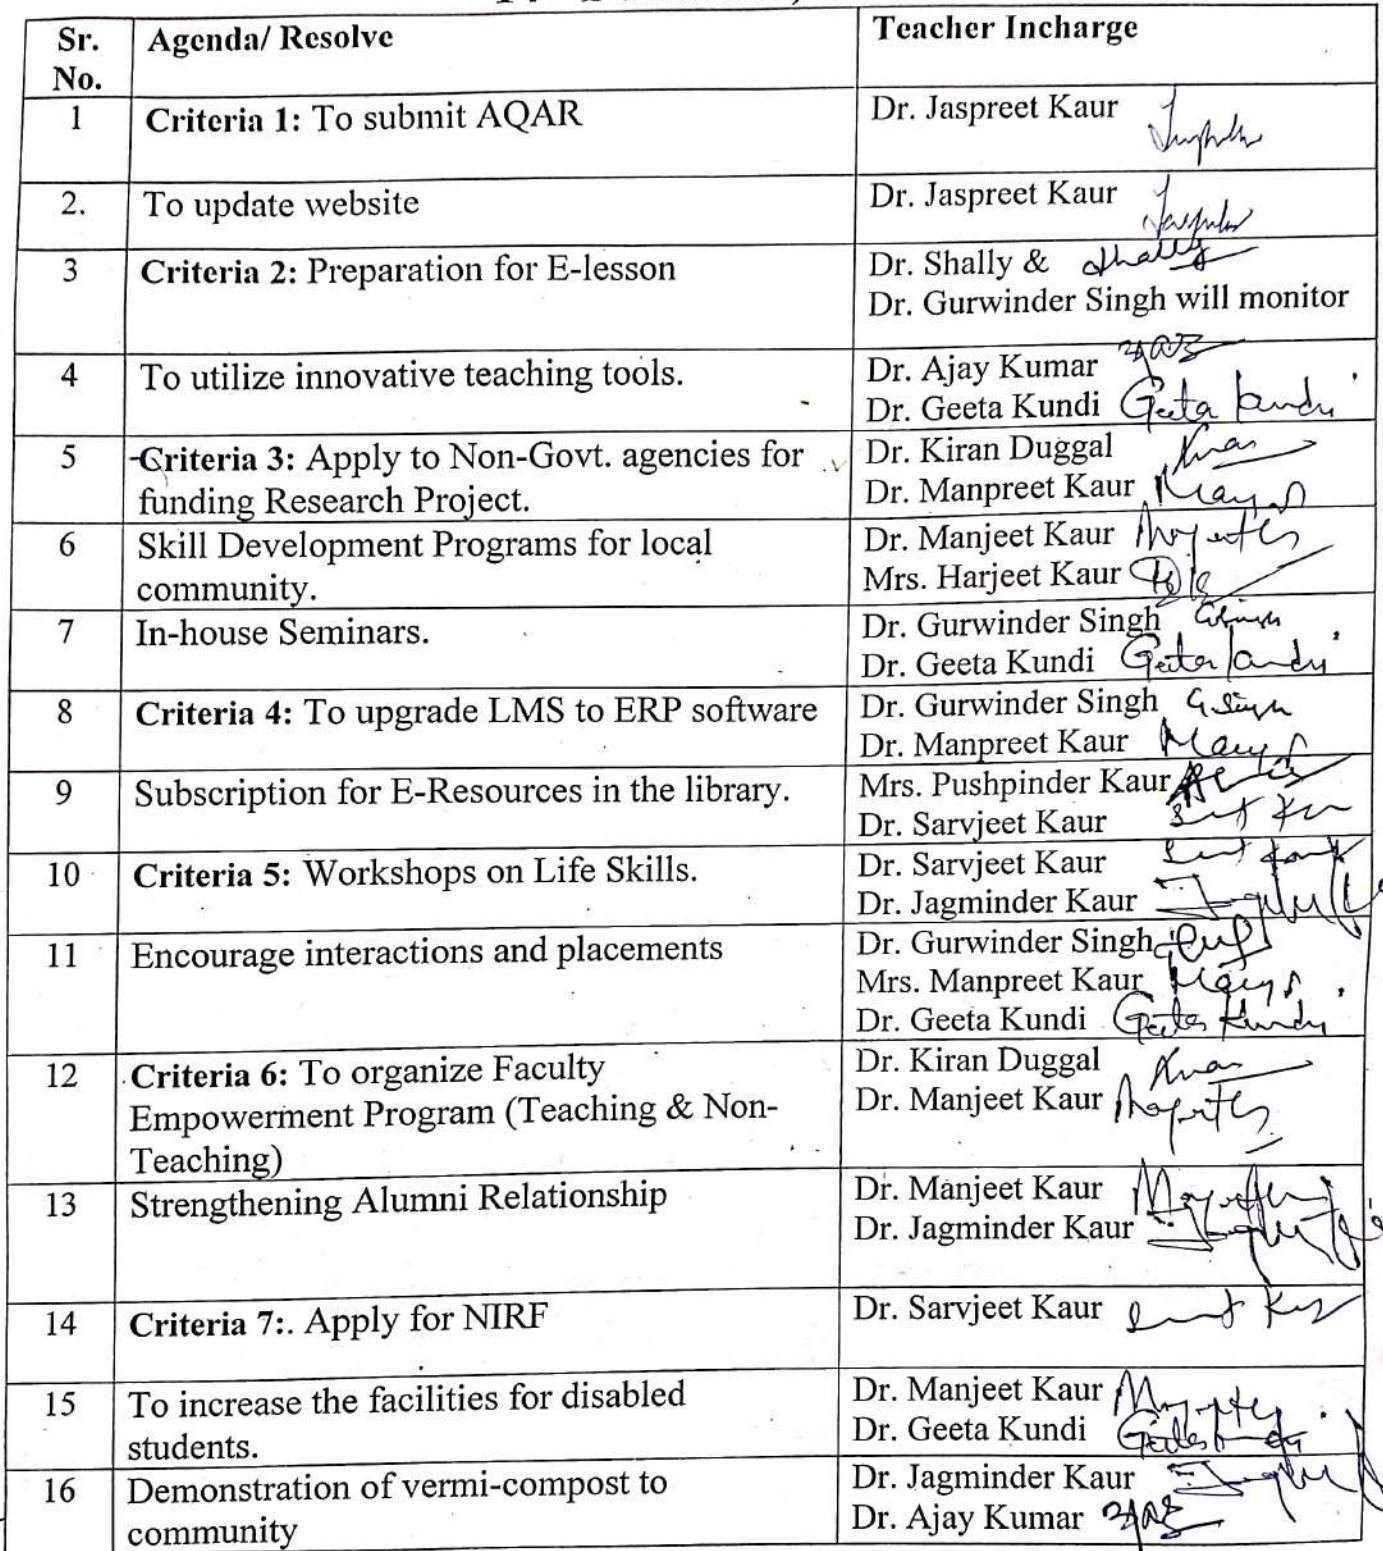 Sr. No. Agenda/ Resolve Teacher Incharge
1 Criteria 1: To submit AQAR Dr. Jaspreet Kaur
2. To update website Dr. Jaspreet Kaur
3 Criteria 2: Preparation for E-lesson Dr. Shally & Shally
Dr. Gurwinder Singh will monitor
4 To utilize innovative teaching tools. Dr. Ajay Kumar
Dr. Geeta Kundi Geeta Kundi
5 Criteria 3: Apply to Non-Govt. agencies for Dr. Kiran Duggal Kiran
funding Research Project. Dr. Manpreet Kaur
6 Skill Development Programs for local Dr. Manjeet Kaur
community. Mrs. Harjeet Kaur
7 In-house Seminars. Dr. Gurwinder Singh GSingh
Dr. Geeta Kundi Geeta Kundi
8 Criteria 4: To upgrade LMS to ERP software Dr. Gurwinder Singh G Singh
Dr. Manpreet Kaur
9 Subscription for E-Resources in the library. Mrs. Pushpinder Kaur
Dr. Sarvjeet Kaur
10 Criteria 5: Workshops on Life Skills. Dr. Sarvjeet Kaur
Dr. Jagminder Kaur
11 Encourage interactions and placements Dr. Gurwinder Singh
Mrs. Manpreet Kaur
Dr. Geeta Kundi Geeta Kundi
12 Criteria 6: To organize Faculty Dr. Kiran Duggal Kiran
Empowerment Program (Teaching & Non- Dr. Manjeet Kaur
Teaching)
13 Strengthening Alumni Relationship Dr. Manjeet Kaur
Dr. Jagminder Kaur
14 Criteria 7:. Apply for NIRF Dr. Sarvjeet Kaur
15 To increase the facilities for disabled Dr. Manjeet Kaur
students. Dr. Geeta Kundi Geeta Kundi
16 Demonstration of vermi-compost to Dr. Jagminder Kaur
community Dr. Ajay Kumar